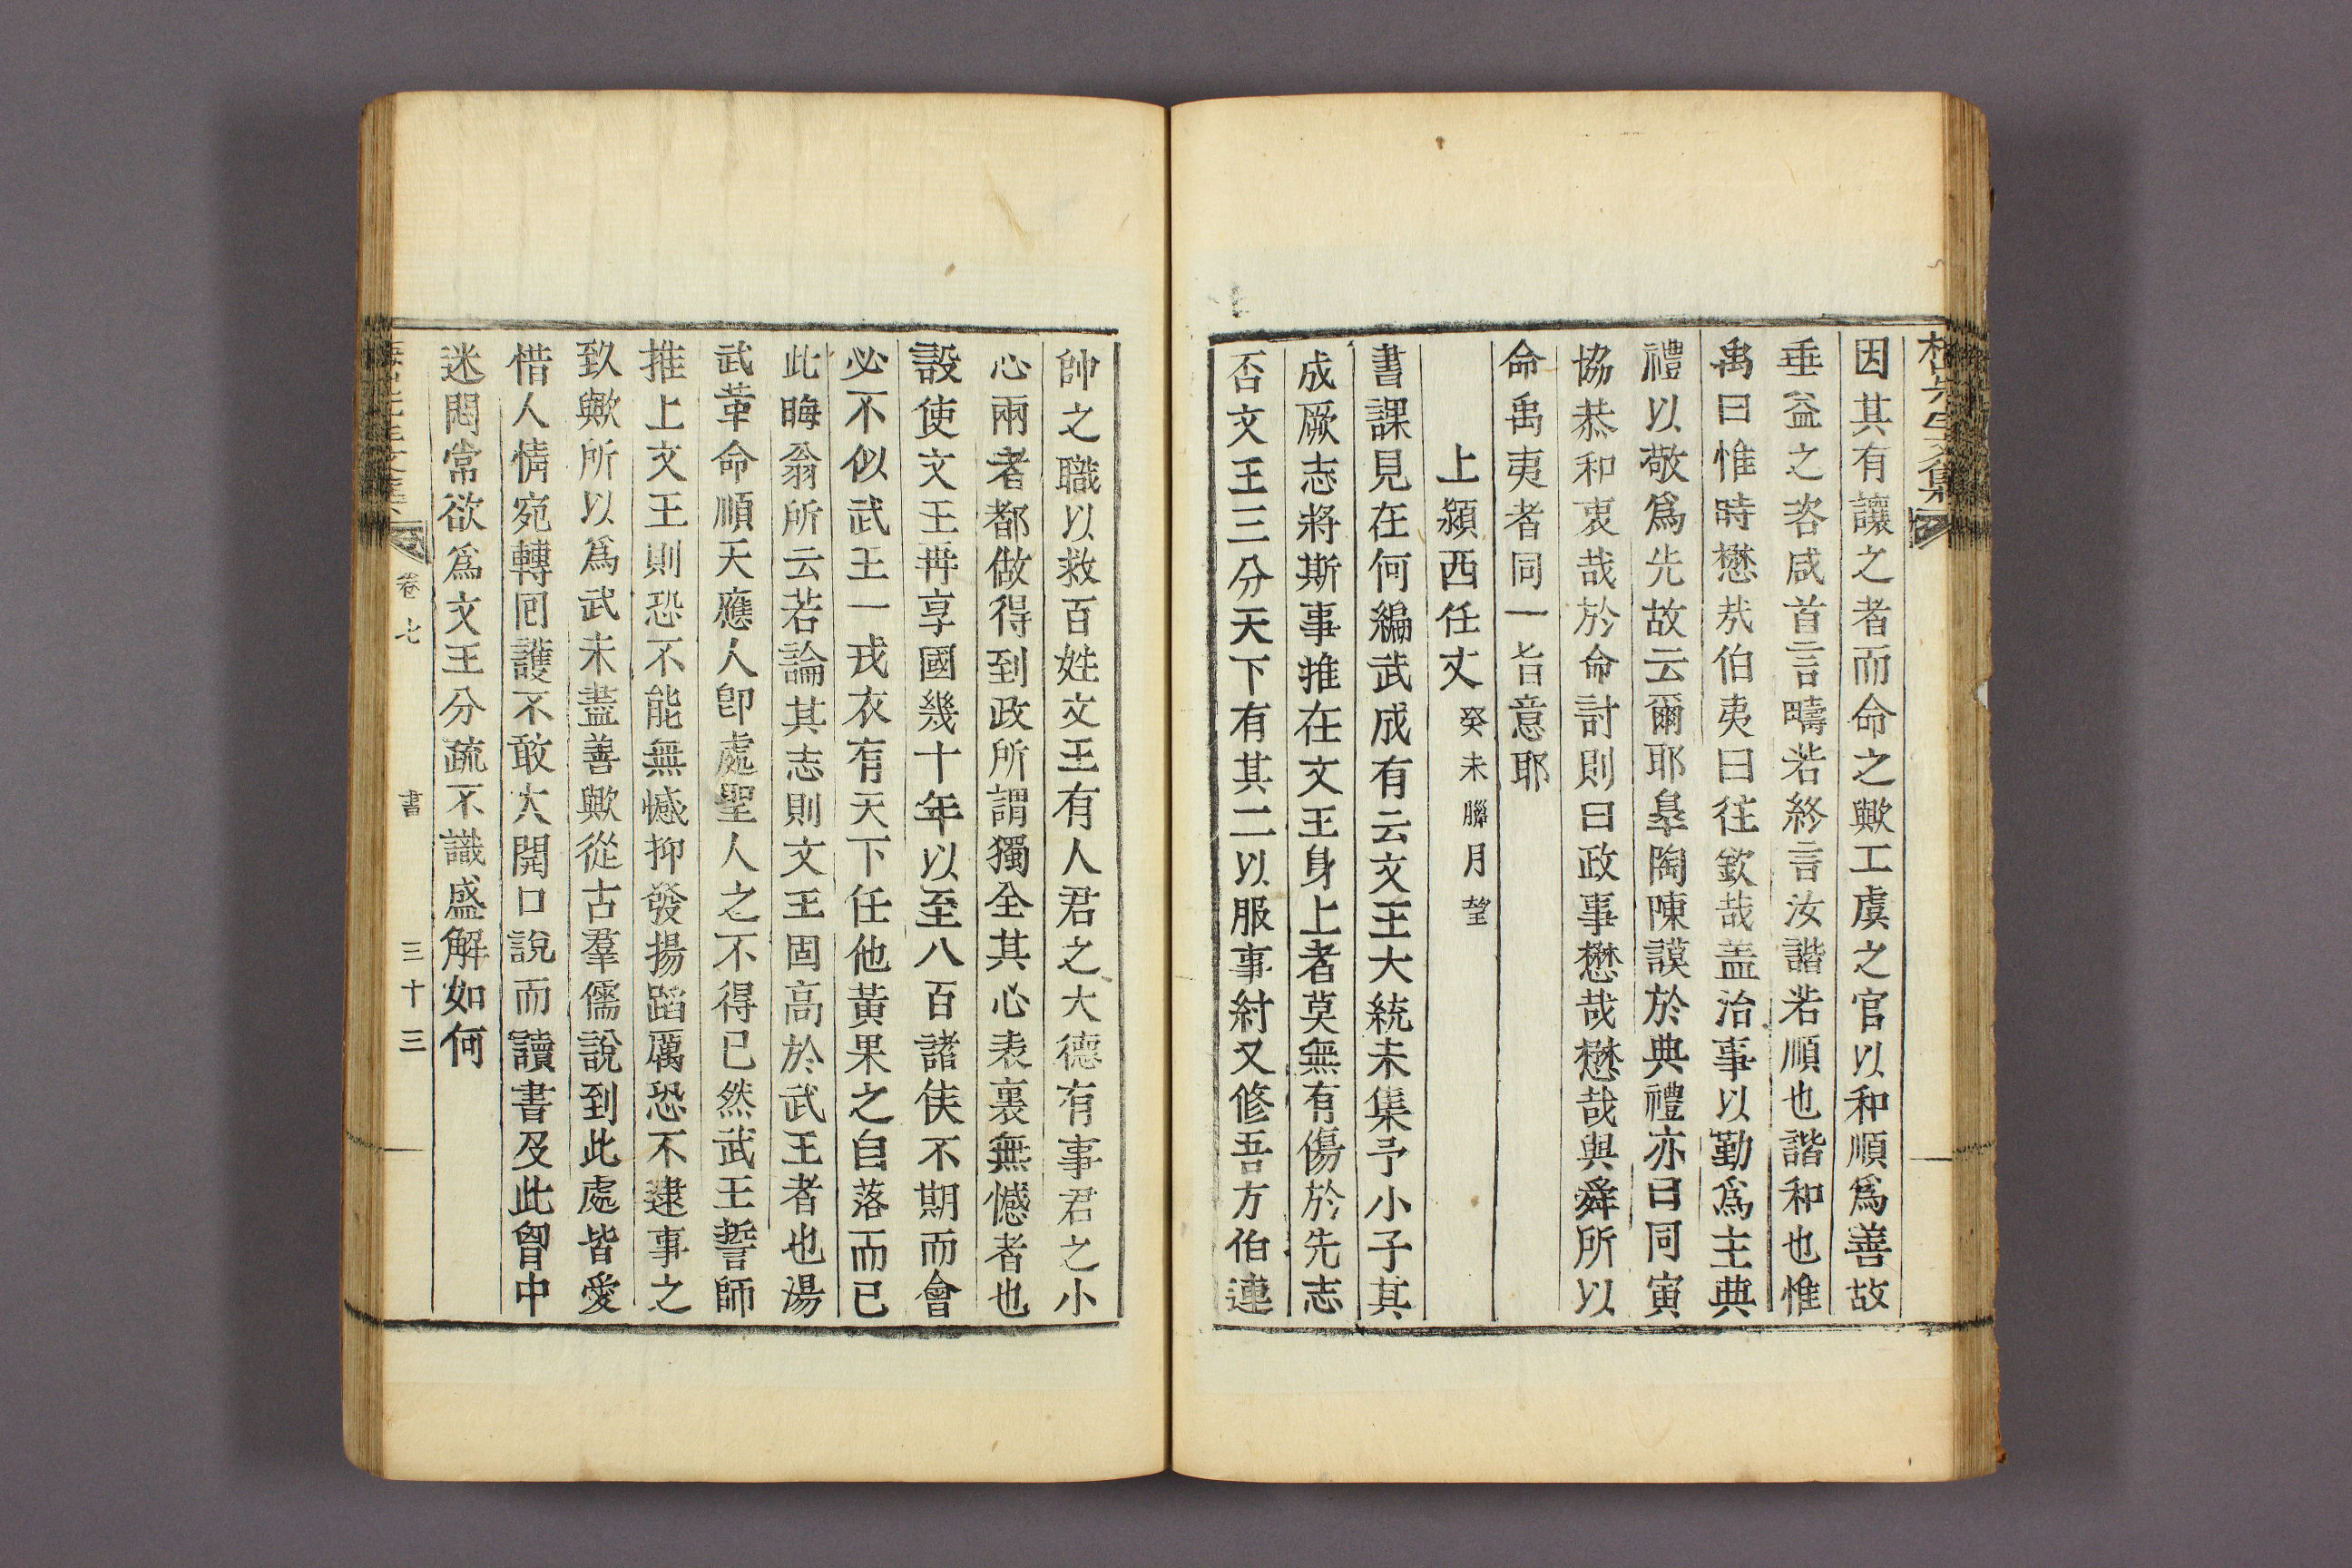 因其有讓之者而命之歟工虞之官以和順爲善故
垂益之咨咸首言疇若終言汝諧若順也諧和也惟
禹曰惟時懋㦲伯夷曰往欽哉盖治事以勤爲主典
禮以敬爲先故云爾耶臯陶陳謨於典禮亦曰同寅
協恭和衷哉於命討則曰政事懋哉懋哉與舜所以
命禹夷者同一旨意耶
上潁西任丈 癸未臘月望
書課見在何編武成有云文王大統未集予小子其
成厥志將斯事推在文王身上者莫無有傷於先志
否文王三分天下有其二以服事紂又修吾方伯連
帥之職以救百姓文王有人君之大德有事君之小
心兩者都做得到政所謂獨全其心表裏無憾者也
設使文王再享國幾十年以至八百諸侯不期而會
必不似武王一戎衣有天下任他黃果之自落而已
此晦翁所云若論其志則文王固高於武王者也湯
武革命順天應人卽處聖人之不得已然武王誓師
推上文王則恐不能無憾抑發揚蹈厲恐不逮事之
致歟所以爲武未盡善歟從古羣儒說到此處皆愛
惜人情宛轉回護不敢大開口說而讀書及此胷中
迷悶常欲爲文王分疏不識盛解如何
卷七 書 三十三